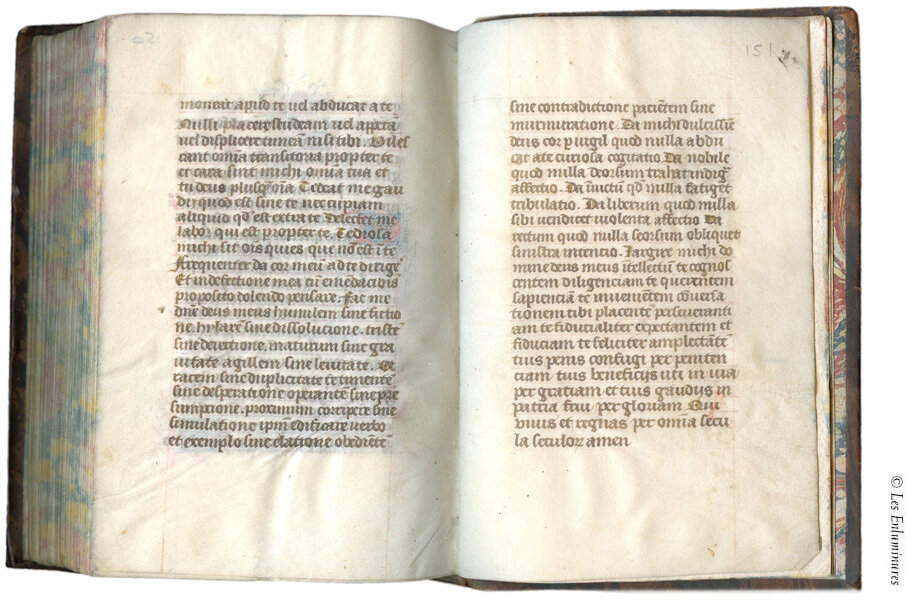 moneat apud te uel abducat a te
Nulli placere studeam uel appetā
uel displicere timeā nisi tibi. Viles
cant omīa transitoria propter te
et cara sint michi omīa tua et
tu deus plusq̄ oīa Tedeat me gau
dij quod est sine te nec cupiam
aliquid qd̄ est extra te Delectet me
labor qui est propter te. Tediosa
michi sit oīs quies que nō est ī te
Frequenter da cor meū ad te dirige
Et in defectione mea cū emēdacōis
proposito dolendo pensare. Fac me
dn̄e deus meus humilem sine fictio
ne hylarē sine dissolucione. tristē
sine deiectione. maturum sine gra
uitate agillem sine leuitate. Ve
racem sine duplicitate te timentē
sine desperatione operantē sine pre
sumpcione. proximum corripere sine
simulatione ipm̄ edificare uerbo
et exemplo sine elatione obedientē
151
sine contradictione pacientem sine
murmuratione. Da michi dulcissīe
deus cor puigil quod nulla abdu
cat a te curiosa cogitatio Da nobile
quod nulla deorsum trahat indigā
affectio. Da īuictū qd̄ nulla fatiget
tribulatio. Da liberum quod nulla
sibi vendicet uiolenta affectio Da
rectum quod nulla seorsum obliquet
sinistra intencio. Largire michi do
mine deus meus ītellectū te cognos
centem diligenciam te querentem
sapienciā te inuenientem cōuersa
tionem tibi placentē perseueranti
am te fiducialiter expectantem et
fiduciam te feliciter amplectantē
tuis penis configi per peniten
ciam tuis beneficijs uti in uia
per gratiam et tuis gaudijs in
patria frui per gloriam Qui
viuis et regnas per omīa secu
la seculor amen
© Les Enluminures